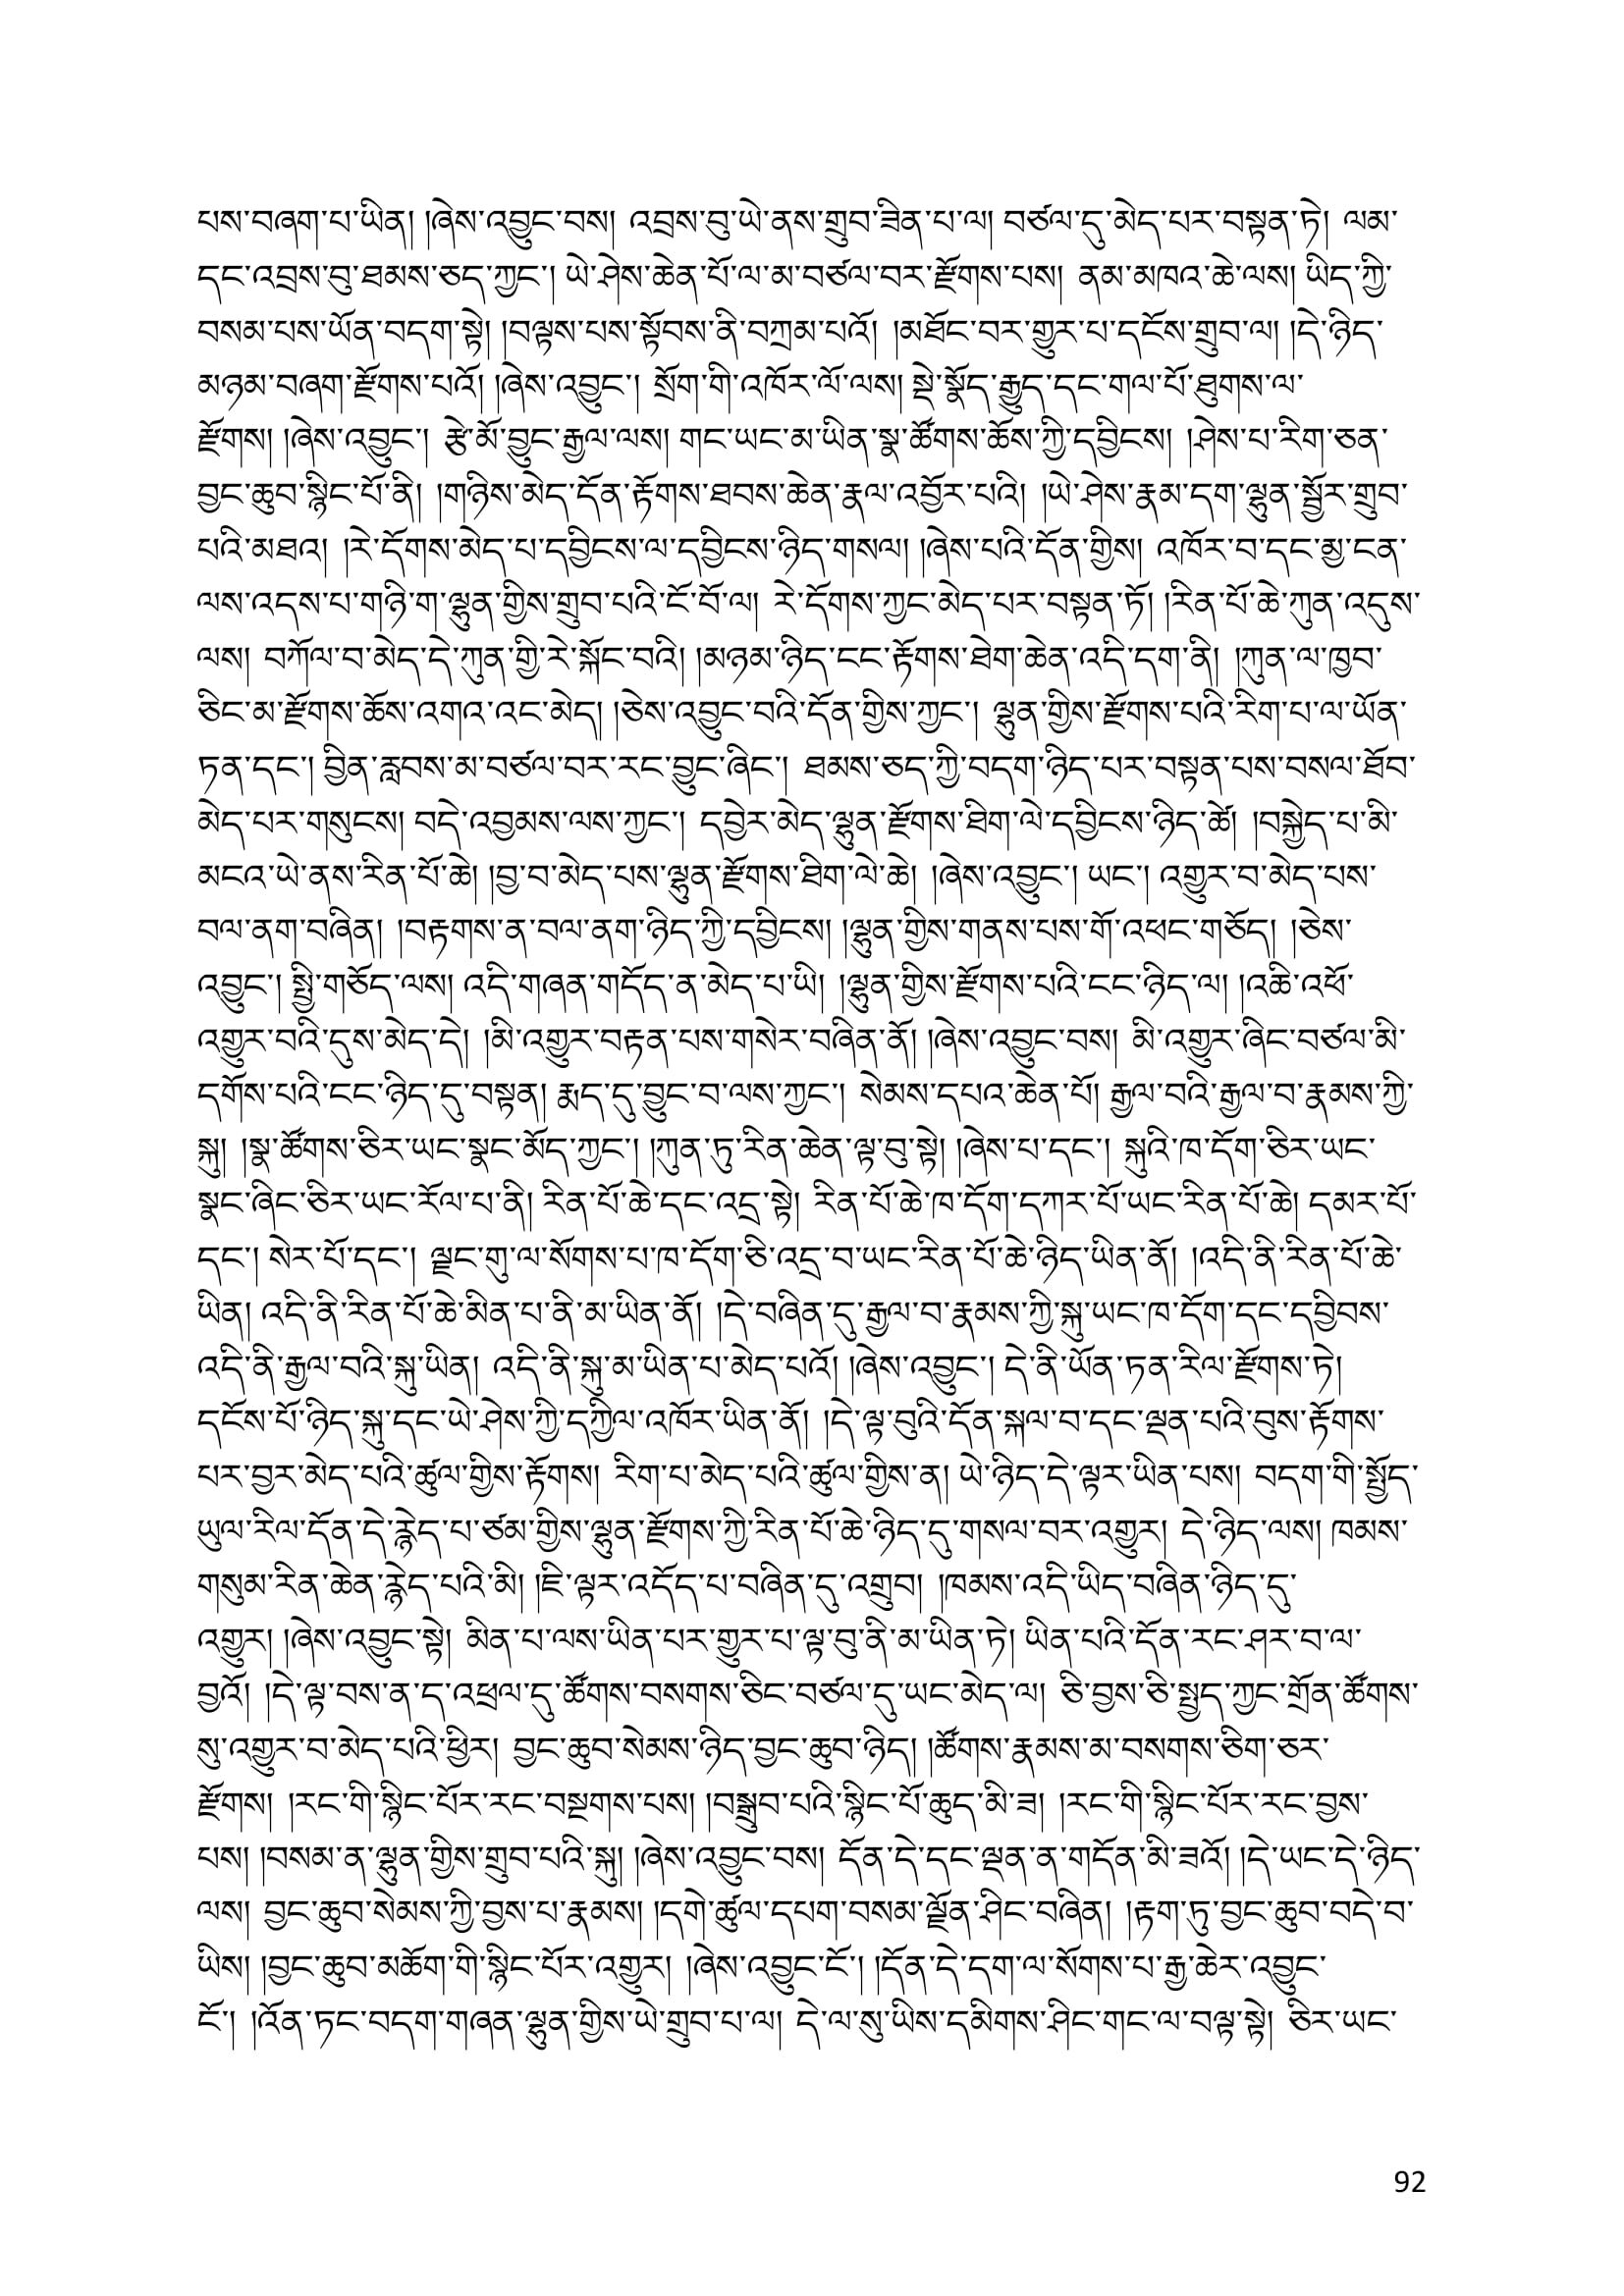 པས་བཞག་པ་ཡིན། །ཞེས་འབྱུང་བས། འབྲས་བུ་ཡེ་ནས་གྲུབ་ཟིན་པ་ལ། བཙལ་དུ་མེད་པར་བསྟན་ཏེ། ལམ་
དང་འབྲས་བུ་ཐམས་ཅད་ཀྱང་། ཡེ་ཤེས་ཆེན་པོ་ལ་མ་བཙལ་བར་རྫོགས་པས། ནམ་མཁའ་ཆེ་ལས། ཡིད་ཀྱི་
བསམ་པས་ཡོན་བདག་སྟེ། །བལྟས་པས་སྟོབས་ནི་བཀྲམ་པའོ། །མཐོང་བར་གྱུར་པ་དངོས་གྲུབ་ལ། །དེ་ཉིད་
མཉམ་བཞག་རྫོགས་པའོ། །ཞེས་འབྱུང་། སྲོག་གི་འཁོར་ལོ་ལས། སྡེ་སྣོད་རྒྱུད་དང་གལ་པོ་ཐུགས་ལ་
རྫོགས། །ཞེས་འབྱུང་། རྩེ་མོ་བྱུང་རྒྱལ་ལས། གང་ཡང་མ་ཡིན་སྣ་ཚོགས་ཆོས་ཀྱི་དབྱིངས། །ཤེས་པ་རིག་ཅན་
བྱང་ཆུབ་སྙིང་པོ་ནི། །གཉིས་མེད་དོན་རྟོགས་ཐབས་ཆེན་རྣལ་འབྱོར་པའི། །ཡེ་ཤེས་རྣམ་དག་ལྷུན་སྦྱོར་གྲུབ་
པའི་མཐའ། །རེ་དོགས་མེད་པ་དབྱིངས་ལ་དབྱིངས་ཉིད་གསལ། །ཞེས་པའི་དོན་གྱིས། འཁོར་བ་དང་མྱ་ངན་
ལས་འདས་པ་གཉི་ག་ལྷུན་གྱིས་གྲུབ་པའི་ངོ་བོ་ལ། རེ་དོགས་ཀྱང་མེད་པར་བསྟན་ཏོ། །རིན་པོ་ཆེ་ཀུན་འདུས་
ལས། བཀོལ་བ་མེད་དེ་ཀུན་གྱི་རེ་སྐོང་བའི། །མཉམ་ཉིད་ངང་རྟོགས་ཐེག་ཆེན་འདི་དག་ནི། །ཀུན་ལ་ཁྱབ་
ཅིང་མ་རྫོགས་ཆོས་འགའ་འང་མེད། །ཅེས་འབྱུང་བའི་དོན་གྱིས་ཀྱང་། ལྷུན་གྱིས་རྫོགས་པའི་རིག་པ་ལ་ཡོན་
ཏན་དང་། བྱིན་རླབས་མ་བཙལ་བར་རང་བྱུང་ཞིང་། ཐམས་ཅད་ཀྱི་བདག་ཉིད་པར་བསྟན་པས་བསལ་ཐོབ་
མེད་པར་གསུངས། བདེ་འབྱམས་ལས་ཀྱང་། དབྱེར་མེད་ལྷུན་རྫོགས་ཐིག་ལེ་དབྱིངས་ཉིད་ཚེ། །བསྐྱེད་པ་མི་
མངའ་ཡེ་ནས་རིན་པོ་ཆེ། །བྱ་བ་མེད་པས་ལྷུན་རྫོགས་ཐིག་ལེ་ཆེ། །ཞེས་འབྱུང་། ཡང་། འགྱུར་བ་མེད་པས་
བལ་ནག་བཞིན། །བརྟགས་ན་བལ་ནག་ཉིད་ཀྱི་དབྱིངས། །ལྷུན་གྱིས་གནས་པས་གོ་འཕང་གཅོད། །ཅེས་
འབྱུང་། སྤྱི་གཅོད་ལས། འདི་གཞན་གདོད་ན་མེད་པ་ཡི། །ལྷུན་གྱིས་རྫོགས་པའི་ངང་ཉིད་ལ། །འཆི་འཕོ་
འགྱུར་བའི་དུས་མེད་དེ། །མི་འགྱུར་བརྟན་པས་གསེར་བཞིན་ནོ། །ཞེས་འབྱུང་བས། མི་འགྱུར་ཞིང་བཙལ་མི་
དགོས་པའི་ངང་ཉིད་དུ་བསྟན། རྨད་དུ་བྱུང་བ་ལས་ཀྱང་། སེམས་དཔའ་ཆེན་པོ། རྒྱལ་བའི་རྒྱལ་བ་རྣམས་ཀྱི་
སྐུ། །སྣ་ཚོགས་ཅིར་ཡང་སྣང་མོད་ཀྱང་། །ཀུན་ཏུ་རིན་ཆེན་ལྟ་བུ་སྟེ། །ཞེས་པ་དང་། སྐུའི་ཁ་དོག་ཅིར་ཡང་
སྣང་ཞིང་ཅིར་ཡང་རོལ་པ་ནི། རིན་པོ་ཆེ་དང་འདྲ་སྟེ། རིན་པོ་ཆེ་ཁ་དོག་དཀར་པོ་ཡང་རིན་པོ་ཆེ། དམར་པོ་
དང་། སེར་པོ་དང་། ལྗང་གུ་ལ་སོགས་པ་ཁ་དོག་ཅི་འདྲ་བ་ཡང་རིན་པོ་ཆེ་ཉིད་ཡིན་ནོ། །འདི་ནི་རིན་པོ་ཆེ་
ཡིན། འདི་ནི་རིན་པོ་ཆེ་མིན་པ་ནི་མ་ཡིན་ནོ། །དེ་བཞིན་དུ་རྒྱལ་བ་རྣམས་ཀྱི་སྐུ་ཡང་ཁ་དོག་དང་དབྱིབས་
འདི་ནི་རྒྱལ་བའི་སྐུ་ཡིན། འདི་ནི་སྐུ་མ་ཡིན་པ་མེད་པའོ། །ཞེས་འབྱུང་། དེ་ནི་ཡོན་ཏན་རིལ་རྫོགས་ཏེ།
དངོས་པོ་ཉིད་སྐུ་དང་ཡེ་ཤེས་ཀྱི་དཀྱིལ་འཁོར་ཡིན་ནོ། །དེ་ལྟ་བུའི་དོན་སྐལ་བ་དང་ལྡན་པའི་བུས་རྟོགས་
པར་བྱར་མེད་པའི་ཚུལ་གྱིས་རྟོགས། རིག་པ་མེད་པའི་ཚུལ་གྱིས་ན། ཡེ་ཉིད་དེ་ལྟར་ཡིན་པས། བདག་གི་སྤྱོད་
ཡུལ་རིལ་དོན་དེ་རྙེད་པ་ཙམ་གྱིས་ལྷུན་རྫོགས་ཀྱི་རིན་པོ་ཆེ་ཉིད་དུ་གསལ་བར་འགྱུར། དེ་ཉིད་ལས། ཁམས་
གསུམ་རིན་ཆེན་རྙེད་པའི་མི། །ཇི་ལྟར་འདོད་པ་བཞིན་དུ་འགྲུབ། །ཁམས་འདི་ཡིད་བཞིན་ཉིད་དུ་
འགྱུར། །ཞེས་འབྱུང་སྟེ། མིན་པ་ལས་ཡིན་པར་གྱུར་པ་ལྟ་བུ་ནི་མ་ཡིན་ཏེ། ཡིན་པའི་དོན་རང་ཤར་བ་ལ་
བྱའོ། །དེ་ལྟ་བས་ན་ད་འཕྲལ་དུ་ཚོགས་བསགས་ཅིང་བཙལ་དུ་ཡང་མེད་ལ། ཅི་བྱས་ཅི་སྤྱད་ཀྱང་གྲོན་ཚོགས་
སུ་འགྱུར་བ་མེད་པའི་ཕྱིར། བྱང་ཆུབ་སེམས་ཉིད་བྱང་ཆུབ་ཉིད། །ཚོགས་རྣམས་མ་བསགས་ཅིག་ཅར་
རྫོགས། །རང་གི་སྙིང་པོར་རང་བསྔགས་པས། །བསྒྲུབ་པའི་སྙིང་པོ་ཆུད་མི་ཟ། །རང་གི་སྙིང་པོར་རང་བྱས་
པས། །བསམ་ན་ལྷུན་གྱིས་གྲུབ་པའི་སྐུ། །ཞེས་འབྱུང་བས། དོན་དེ་དང་ལྡན་ན་གདོན་མི་ཟའོ། །དེ་ཡང་དེ་ཉིད་
ལས། བྱང་ཆུབ་སེམས་ཀྱི་བྱས་པ་རྣམས། །དགེ་ཚུལ་དཔག་བསམ་ལྗོན་ཤིང་བཞིན། །རྟག་ཏུ་བྱང་ཆུབ་བདེ་བ་
ཡིས། །བྱང་ཆུབ་མཆོག་གི་སྙིང་པོར་འགྱུར། །ཞེས་འབྱུང་ངོ་། །དོན་དེ་དག་ལ་སོགས་པ་རྒྱ་ཆེར་འབྱུང་
ངོ་། །འོན་ཏང་བདག་གཞན་ལྷུན་གྱིས་ཡེ་གྲུབ་པ་ལ། དེ་ལ་སུ་ཡིས་དམིགས་ཤིང་གང་ལ་བལྟ་སྟེ། ཅིར་ཡང་
92